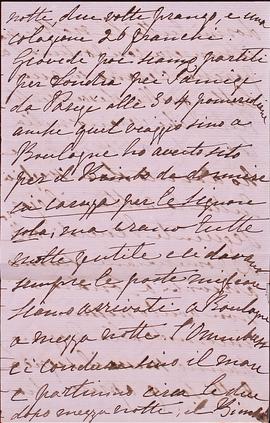 notte, due volte pranzo, e una
colazione 26 franchi.
Giovedì poi siamo partiti
per Londra pei Tamigi
da Parigi alle 3 o 4 pomeridiane
anche quel viaggio sino a
Boulogne ho avuto sito
per il Bimbo da dormire
in carozza per le Signore
sola, ma erano tutte
molto gentile e le davano
sempre le parte migliori
siamo arrivati a Boulogne
a mezza notte. L'Omnibus
ci condusse sino il mare
e partimmo circa le due
dopo mezza notte, il Bimbo